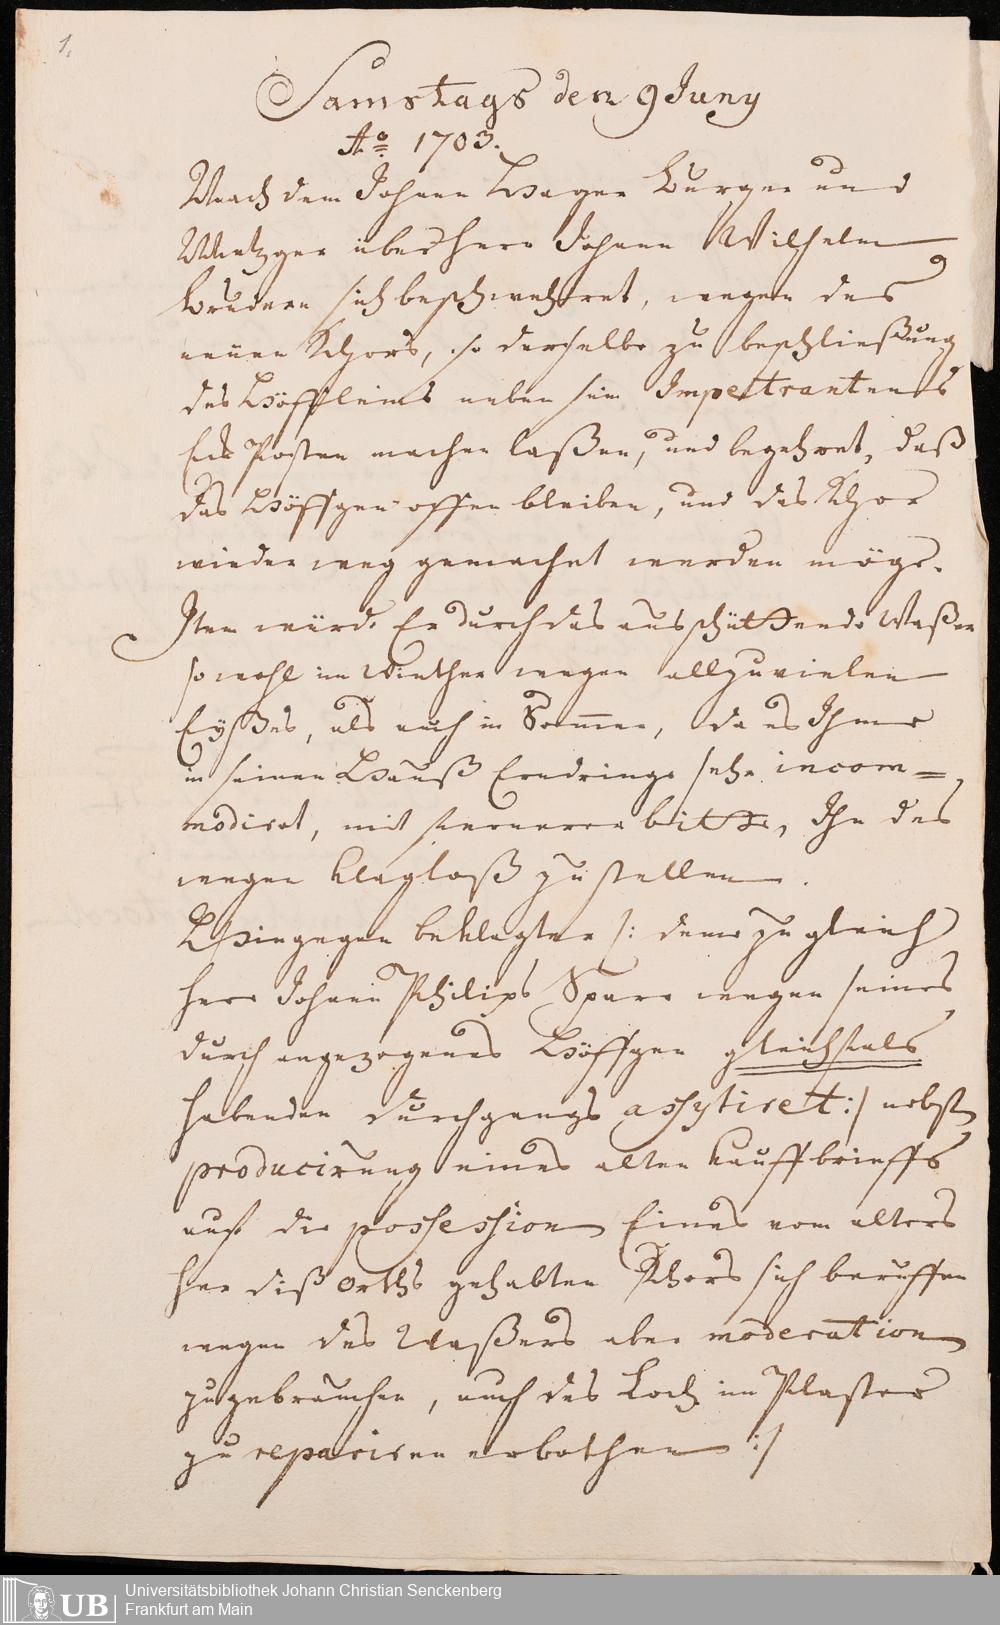 1.
Samstags den 9 Juny
Ao. 1703.
Nach dem Johann Hager Burger und
Metzger über Herr Johann Wilhelm
Brudern sich beschwehret, wegen des
neuen Thors, so derselbe zu beschließung
des Höffleins neben sein Impetrantens
Eck Posten machen laßen, und begehret, daß
das Höffgen offen bleiben, und das Thor
wieder weg gemachet werden möge.
Item würde Er durch das ausschüttende Waßer
so wohl im Winther wegen allzuvielen
Eyßes, als auch im Sommer, da es Ihme
in seinen Hauß Erndringe sehr incom=
modiret, mit fernerer bitte, Ihn des
wegen klagloß zu stellen.
Hingegen beklagter /: deme zugleich
Herr Johann Philips Sparr wegen seines
durch angezogenes Höffgen gleichfals
habenden Durchgangs assistiret :/ nebst
producirung eines alten kauffbrieffs
auf die possession Eines vom alters
her diß Orths gehabten Thors sich beruffen
wegen des Waßers aber moderation
zu gebrauchen, auch das Loch im Plaster
zu repariren erbothen :/
UB
Universitätsbibliothek Johann Christian Senckenberg
Frankfurt am Main